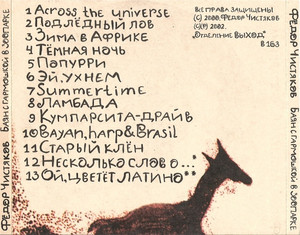 1 Across the universe
2 Подлёдный лов
3 Зима в Африке
4 Тёмная ночь
5 Попурри
6 Эй, ухнем
7 Summertime
8 Ламбада
9 Кумпарсита-драйв
10 Bayan, harp & Brasil
11 Старый клён
12 Несколько слов о...*
13 Ой, цветёт латино**
Все права защищены
(C) 2000. Фёдор Чистяков
(C)(P) 2002.
"Отделение ВЫХОД"
В 163
Фёдор Чистяков Баян с гармошкой в зоопарке
Фёдор Чистяков Баян с гармошкой в зоопарке